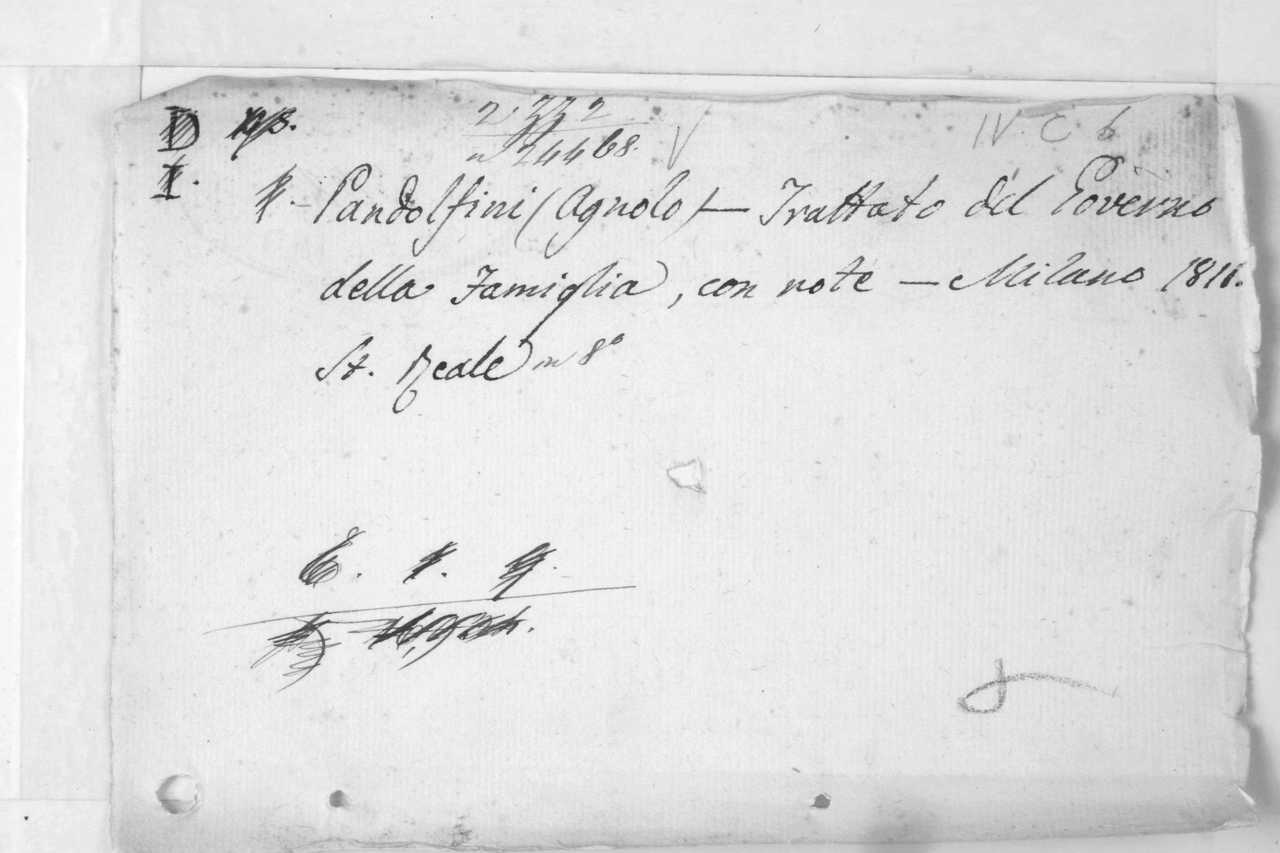 D
I.
2. 222
n 24468. V
IV. C 6
Pandolfini (Agnolo) — Trattato del Governo
della Famiglia, con note — Milano 1811.
St. Reale in 8°